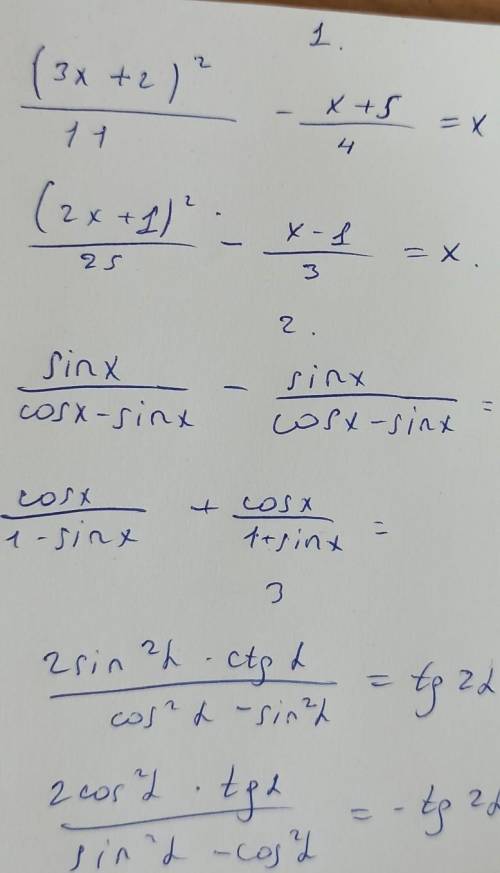 1.
(3x+2)²/11 - x+5/4 = x
(2x+1)²/25 - x-1/3 = x.
2.
sinx/cosx-sinx - sinx/cosx-sinx =
cosx/1-sinx + cosx/1+sinx =
3
2sin²α · ctgα/cos²α-sin²α = tg2α
2cos²α · tgα/sin²α-cos²α = -tg2α